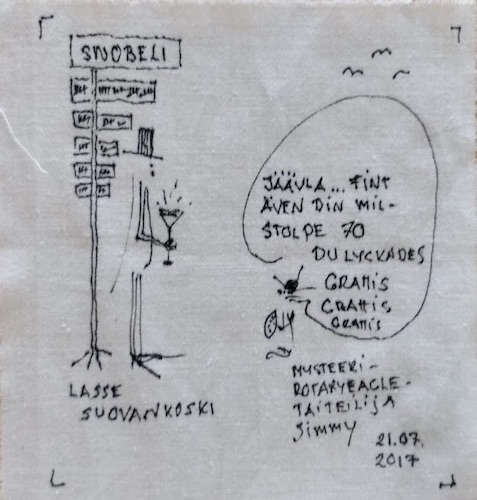 SNOBELI
JÄÄVLA... FINT
ÄVEN DIN MIL-
STOLPE 70
DU LYCKADES
GRATTIS
GRATTIS
GRATTIS
LASSE
SUOVANKOSKI
MYSTEERI-
ROTARYEAGLE-
TAITEILIJA
Jimmy
21.07.
2017